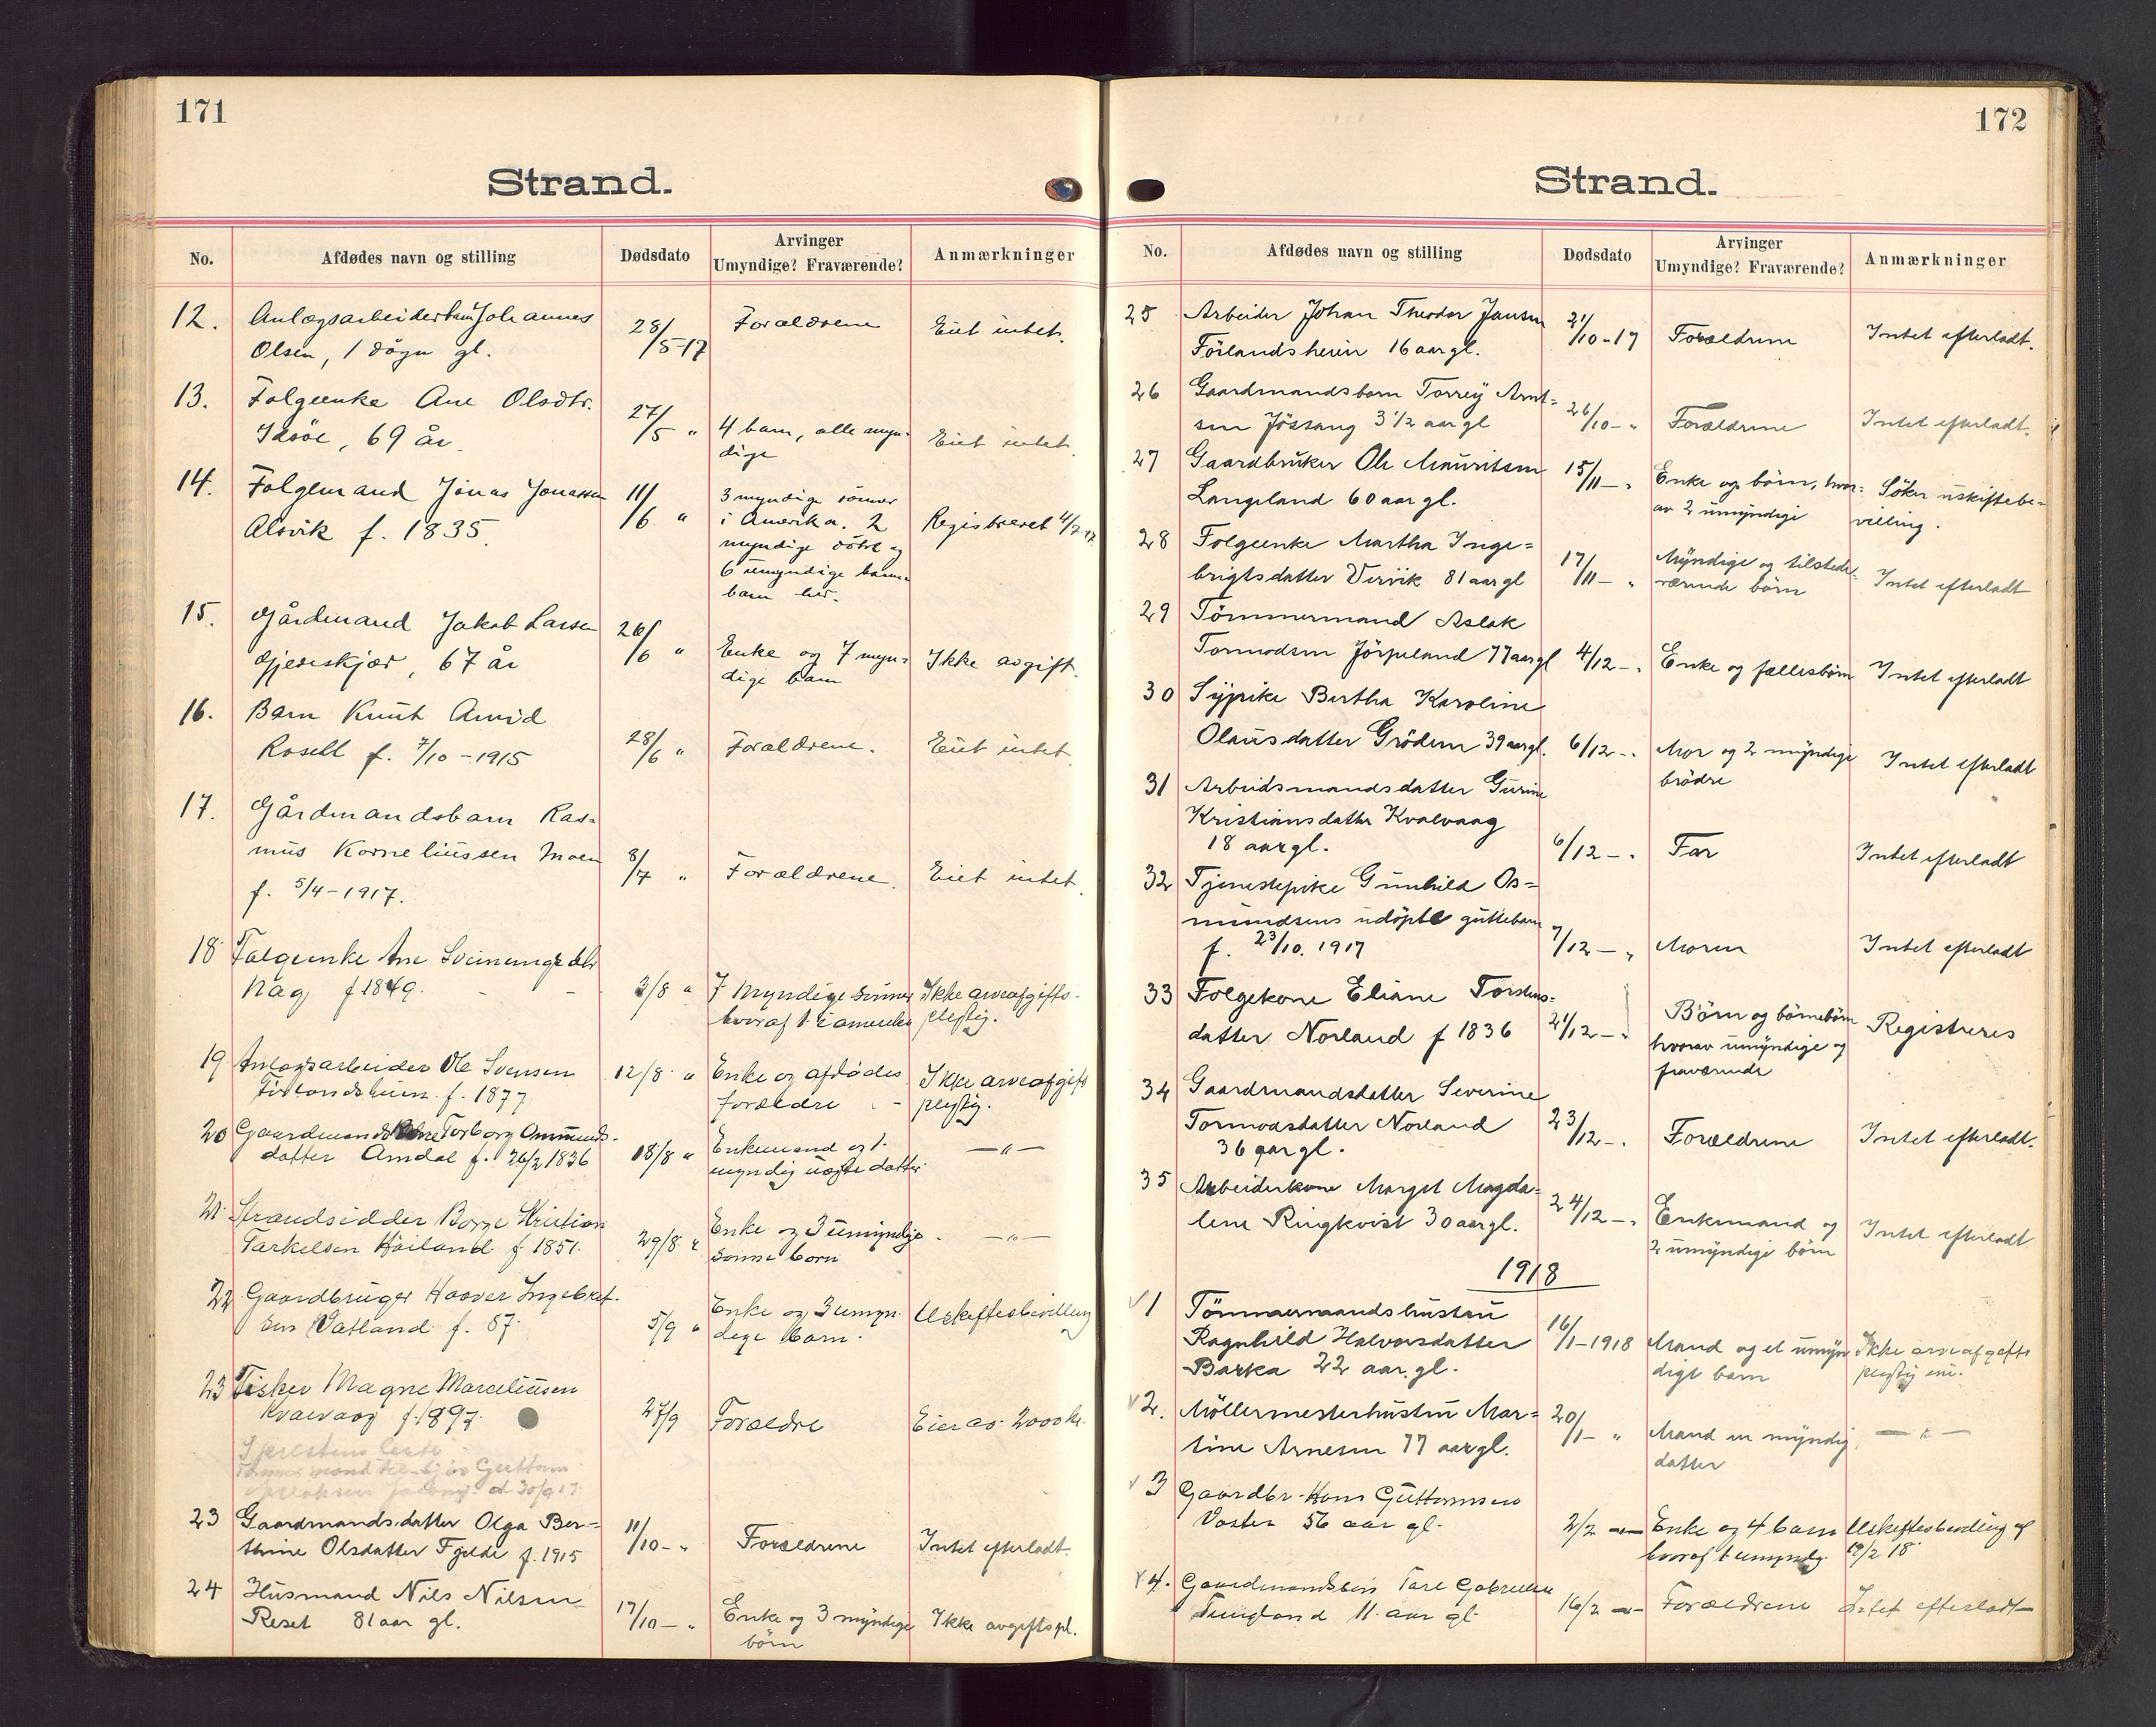 171
Strand.
No. Afdødes navn og stilling Dødsdato Arvinger Umyndige? Fraværende? Anmærkninger
12. Anlægsarbeiderbarn Johannes 28/5-17 Forældrene Eiet intet.
Olsen, 1 døgn gl.
13. Følgeenke Ane Olsdtr. 27/5 " 4 barn, alle myn-
Idsöe, 69 år. dige Eiet intet.
14. Følgemand Jonas Jonassen 11/6 " 3 myndige sönner
Alsvik f. 1835. i Amerika. 2 Registreret 4/7-17
myndige döttre og
6 umyndige barne-
barn her.
15. Gårdmand Jakob Larsen 26/6 " Enke og 7 myn- Ikke avgift.
Gjereskjær, 67 år dige barn
16. Barn Knut Arvid 28/6 " Forældrene. Eiet intet.
Rosell f. 7/10-1915
17. Gårdmandsbarn Ras-
mus Korneliussen Moen 8/7 " Forældrene. Eiet intet.
f. 5/4-1917.
18 Følgeenke Ane Sveinungsdtr
Nag f 1849. 3/8 " 7 Myndige sönner Ikke arveafgifts-
hvoraf 1 i amerika pligtig.
19 Anlægsarbeider Ole Svensen 12/8 " Enke og afdødes Ikke arveafgifts
Förlandsheien f. 1877 forældre pligtig.
20 Gaardmandskone Torborg Ommunds-
datter Amdal f. 26/2 1836 18/8 " Enkemand og 1 — " —
myndig datter
21. Strandsidder Borge Kristian
Tarkelsen Höiland f 1851. 29/8 " Enke og 3 umyndige — " —
sönne born
22 Gaardbruger Haaver Ingebret-
sen Vatland f. 67. 5/9 " Enke og 3 umyn- Uskiftesbevilling
dige barn.
23 Fisker Magne Marceliusen
Kvalvaag f. 1897. 27/9 Forældre Eier ca. 2000 kr.
23 Gaardmandsdatter Olga Ber-
thine Olsdatter Fjelde f. 1915 11/10- " Forældrene Intet efterladt.
24 Husmand Nils Nilsen
Reset 81 aar gl. 17/10- " Enke og 3 myndige Ikke avgiftspl.
börn
172
Strand.
No. Afdødes navn og stilling Dødsdato Arvinger Umyndige? Fraværende? Anmærkninger
25 Arbeider Johan Theodor Jansen 21/10-17 Forældrene Intet efterladt.
Förlandsheien 16 aar gl.
26 Gaardmandsbarn Torrey Arnt-
sen Jössang 3 1/2 aar gl 26/10- " Forældrene Intet efterladt.
27 Gaardbruker Ole Mauritsen 15/11- " Enke og börn, hvor- Söker uskiftebe-
Langeland 60 aar gl. av 2 umyndige villing.
28 Følgeenke Martha Inge-
brigtsdatter Vervik 81 aar gl 17/11- " Myndige og tilstede- Intet efterladt
værende börn
29 Tömmermand Aslak
Tormodsen Jörpeland 77 aar gl 4/12- " Enke og fællesbörn Intet efterladt
30 Sypike Bertha Karoline
Olausdatter Grödem 39 aar gl. 6/12- " Mor og 2 myndige Intet efterladt
brödre
31 Arbeidsmandsdatter Gurine
Kristiansdatter Kvalvaag
18 aar gl. 6/12- " Far Intet efterladt
32 Tjenestepike Gunhild Os-
mundsens udöpte guttebarn
f. 23/10. 1917 7/12- " Moren Intet efterladt
33 Følgekone Eliane Torstens-
datter Norland f 1836 21/12- " Börn og börnebörn Registreres
hvorav umyndige og
fraværende
34 Gaardmandsdatter Severine
Tormodsdatter Norland 23/12- " Forældrene Intet efterladt.
36 aar gl.
35 Arbeiderkone Margit Magda-
lene Ringkvist 30 aar gl. 24/12- " Enkemand og Intet efterladt
2 umyndige börn
1918
1 Tömmermandshustru
Ragnhild Halvorsdatter 16/1-1918 Mand og et umyn- Ikke arveafgifts
Barka 22 aar gl. digt barn pligtig
2. Möllermesterhustru Mar-
tine Arnesen 77 aar gl. 20/1- " Mand en myndig — " —
datter
3 Gaardbr. Hans Guttormsen
Voster 56 aar gl. 2/2 — Enke og 4 barn Uskiftesbevilling af
hvoraf 1 umyndig. 19/2 18
4. Gaardmandsbarn Tore Gabrielsen
Tungland 11 aar gl. 16/2 — Forældrene Intet efterladt